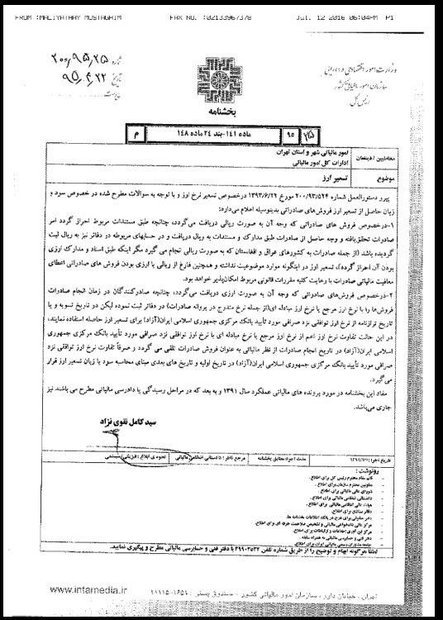 FROM :MALIYATHAY MOSTAGHIM FAX NO. :02133967378 Jul. 12 2016 06:04PM P1
شماره ۲۰۰/۹۵/۲۵
تاریخ ۹۵/۴/۲۲
پیوست
وزارت امور اقتصادی و دارایی
سازمان امور مالیاتی کشور
رئیس کل
بخشنامه
۲۵ ۹۵ ماده ۱۴۱-بند ۲۴ ماده ۱۴۸ م
مخاطبین/ذینفعان
امور مالیاتی شهر و استان تهران
ادارات کل امور مالیاتی
موضوع
تسعیر ارز
پیرو دستورالعمل شماره ۲۰۰/۹۳/۵۲۴ مورخ ۱۳۹۳/۶/۲۲ درخصوص تسعیر نرخ ارز و با توجه به سوالات مطرح شده در خصوص سود و
زیان حاصل از تسعیر ارز فروش های صادراتی بدینوسیله اعلام می‌دارد:
۱-درخصوص فروش های صادراتی که وجه آن به صورت ریالی دریافت می‌گردد، چنانچه طبق مستندات مربوط احراز گردد امر
صادرات تحقق‌یافته و وجه حاصل از صادرات طبق مدارک و مستندات به ریال دریافت و در حسابهای مربوطه در دفاتر نیز به ریال ثبت
گردیده باشد (از جمله صادرات به کشورهای عراق و افغانستان که به صورت ریالی انجام می گیرد مگر اینکه طبق اسناد و مدارک ارزی
بودن آن احراز گردد)، تسعیر ارز در اینگونه موارد موضوعیت نداشته و همچنین فارغ از ریالی یا ارزی بودن فروش های صادراتی اعطای
معافیت مالیاتی صادرات با رعایت کلیه مقررات قانونی مربوط امکان‌پذیر خواهد بود.
۲-درخصوص فروش‌های صادراتی که وجه آن به صورت ارزی دریافت می‌گردد، چنانچه صادرکنندگان در زمان انجام صادرات
فروش‌ها را با نرخ ارز مرجع یا نرخ ارز مبادله ای(از جمله نرخ مندرج در پروانه صادرات) در دفاتر ثبت نموده لیکن در تاریخ تسویه و یا
تاریخ ترازنامه از نرخ ارز توافقی نزد صرافی مورد تأیید بانک مرکزی جمهوری اسلامی ایران(آزاد) برای تسعیر ارز حاصله استفاده نمایند،
در این حالت تفاوت نرخ ارز اعم از نرخ ارز مرجع یا نرخ مبادله ای با نرخ ارز توافقی نزد صرافی مورد تأیید بانک مرکزی جمهوری
اسلامی ایران(آزاد) در تاریخ انجام صادرات از نظر مالیاتی به عنوان فروش صادرات تلقی می گردد و صرفاً تفاوت نرخ ارز توافقی نزد
صرافی مورد تأیید بانک مرکزی جمهوری اسلامی ایران(آزاد) در تاریخ اولیه و تاریخ های بعدی مبنای محاسبه سود یا زیان تسعیر ارز قرار
می گیرد.
مفاد این بخشنامه در مورد پرونده های مالیاتی عملکرد سال ۱۳۹۱ و به بعد که در مراحل رسیدگی یا دادرسی مالیاتی مطرح می باشند نیز
جاری می‌باشد.
سید کامل تقوی نژاد
مدت اجرا: مطابق بخشنامه
مرجع ناظر: دادستانی انتظامی مالیاتی
نحوه ابلاغ: فیزیکی/سیستمی
رونوشت:
لطفا هرگونه ابهام و توضیح را از طریق شماره تلفن ۳۹۹۰۳۵۲۲ با دفتر فنی و حسابرسی مالیاتی مطرح و پیگیری نمایید.
تهران، خیابان داور، سازمان امور مالیاتی کشور - صندوق پستی ۱۶۵۱-۱۱۱۱۵
www.intamedia.ir